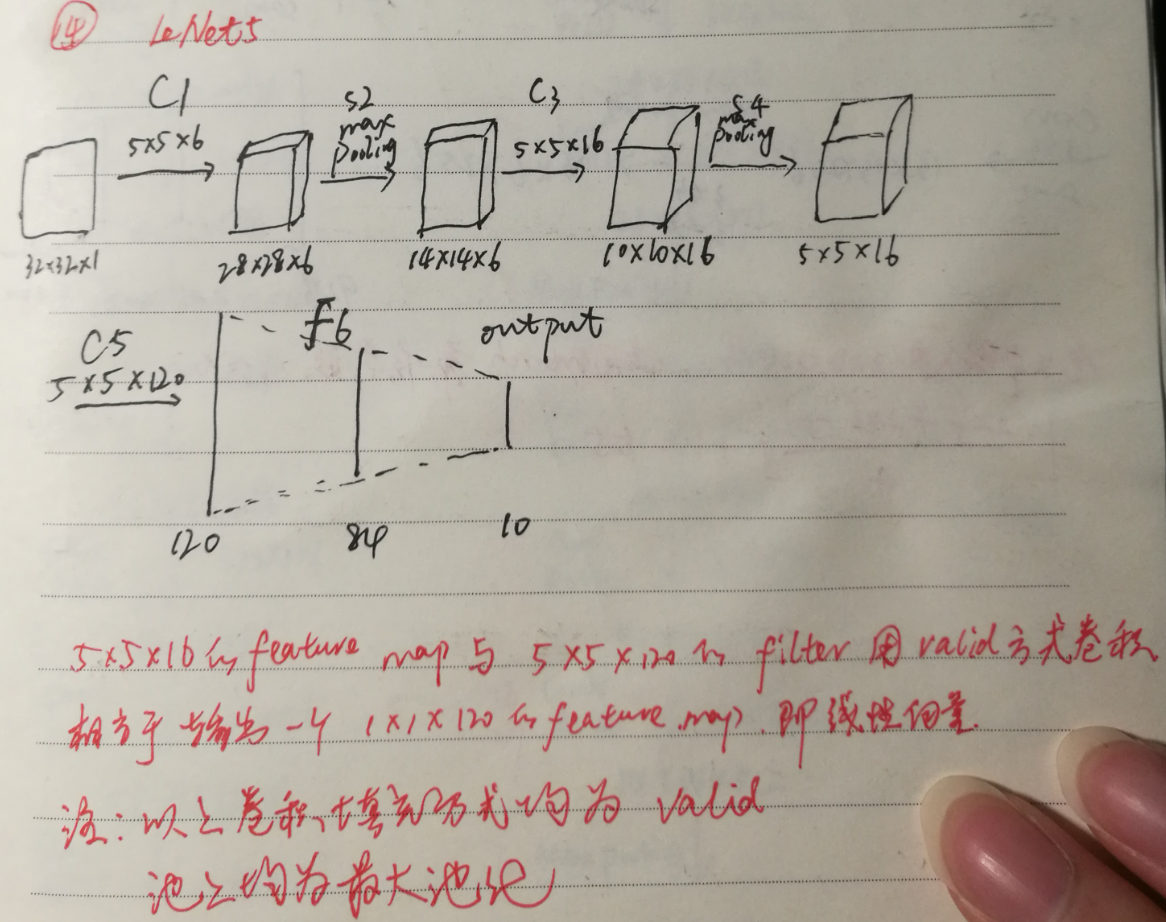 ⑭ LeNet5
C1
5×5×6
S2
max
pooling
C3
5×5×16
S4
max
pooling
32×32×1
28×28×6
14×14×6
10×10×16
5×5×16
C5
5×5×120
F6
output
120
84
10
5×5×16的feature map与5×5×120的filter用valid方式卷积
相当于输出一个1×1×120的feature map.即线性向量.
注:以上卷积填充方式均为valid
池化均为最大池化